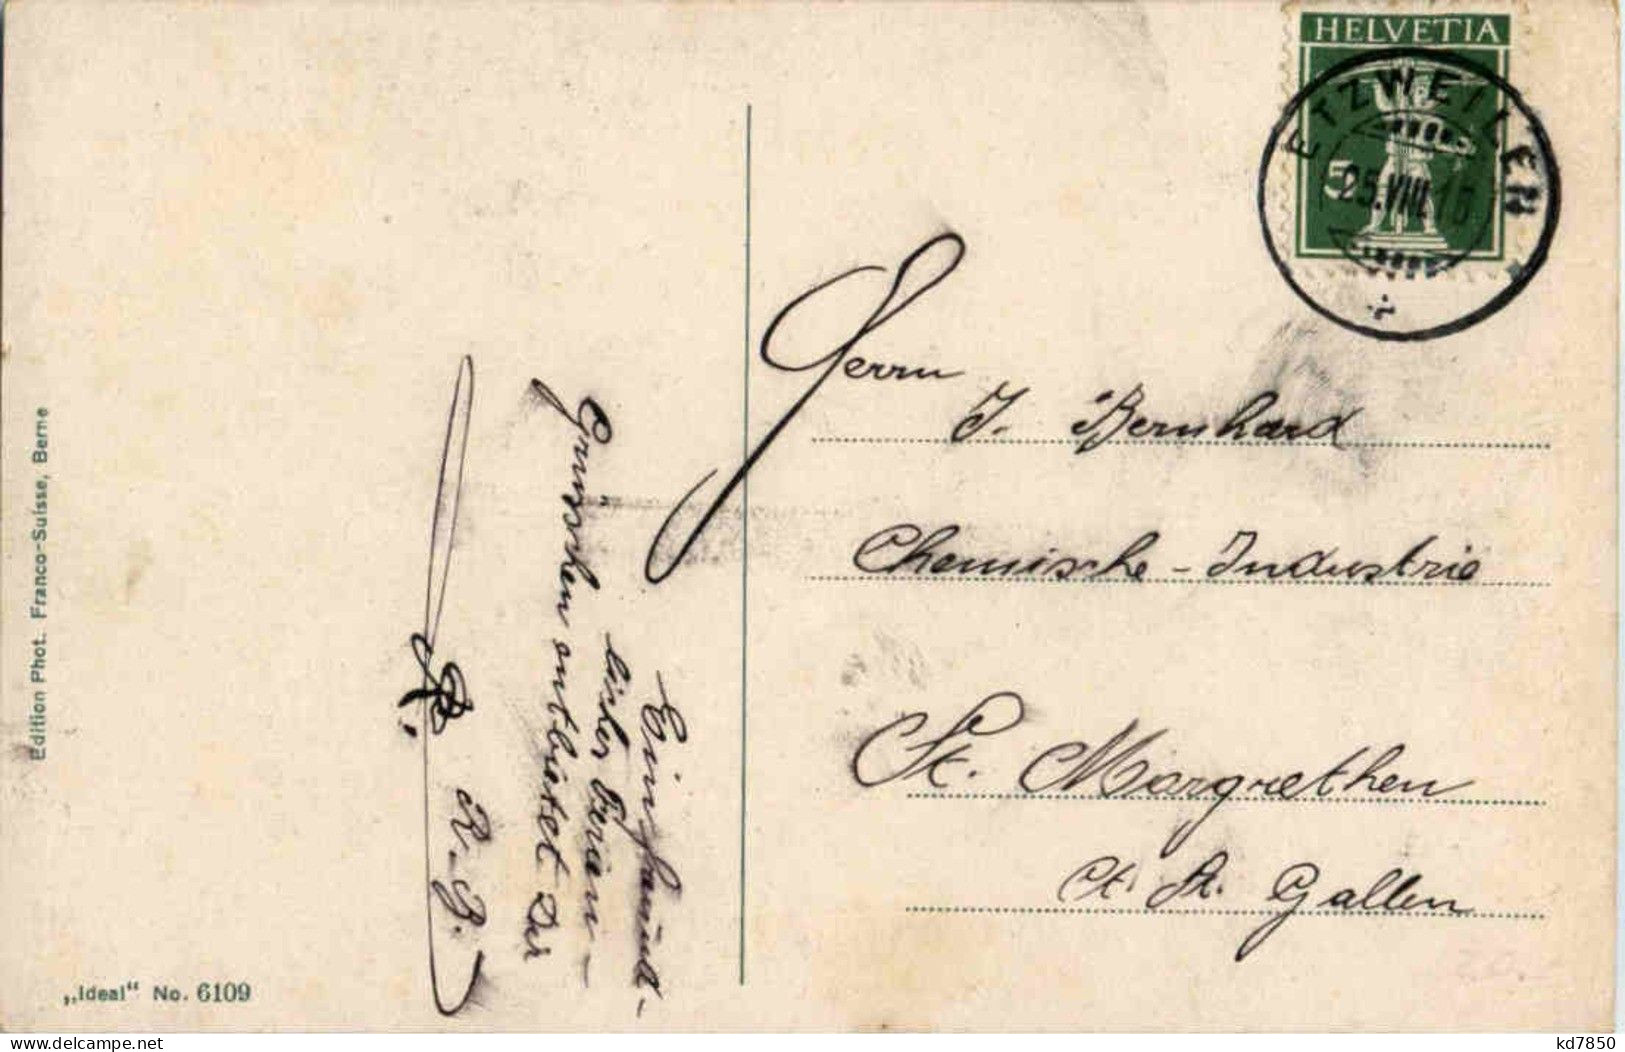 HELVETIA
5
ETZWEILEN
25.VIII.15
Herrn
J. Bernhard
Chemische-Industrie
St. Margrethen
Ct. St. Gallen
Ein freund-
licher Ferien-
Grüsschen entbietet Dir
R. B.
Edition Phot. Franco-Suisse, Berne
„Ideal“ No. 6109
20.-
kd7850